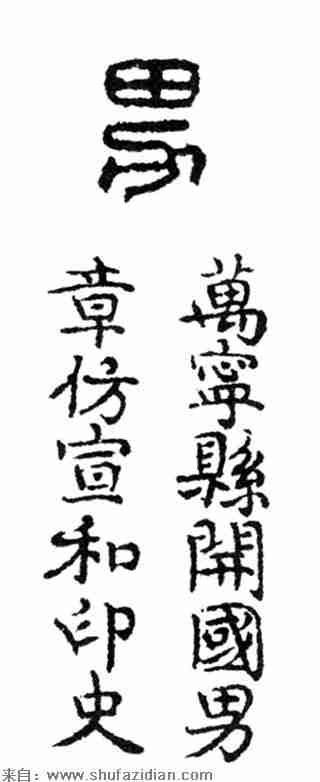 男
萬寧縣開國男
章仿宣和印史
来自：www.shufazidian.com